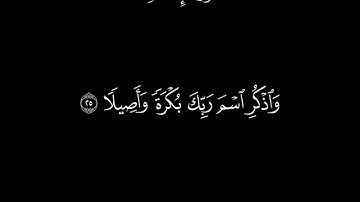 وَٱذۡكُرِ ٱسۡمَ رَبِّكَ بُكۡرَةٗ وَأَصِيلٗا ٢٥